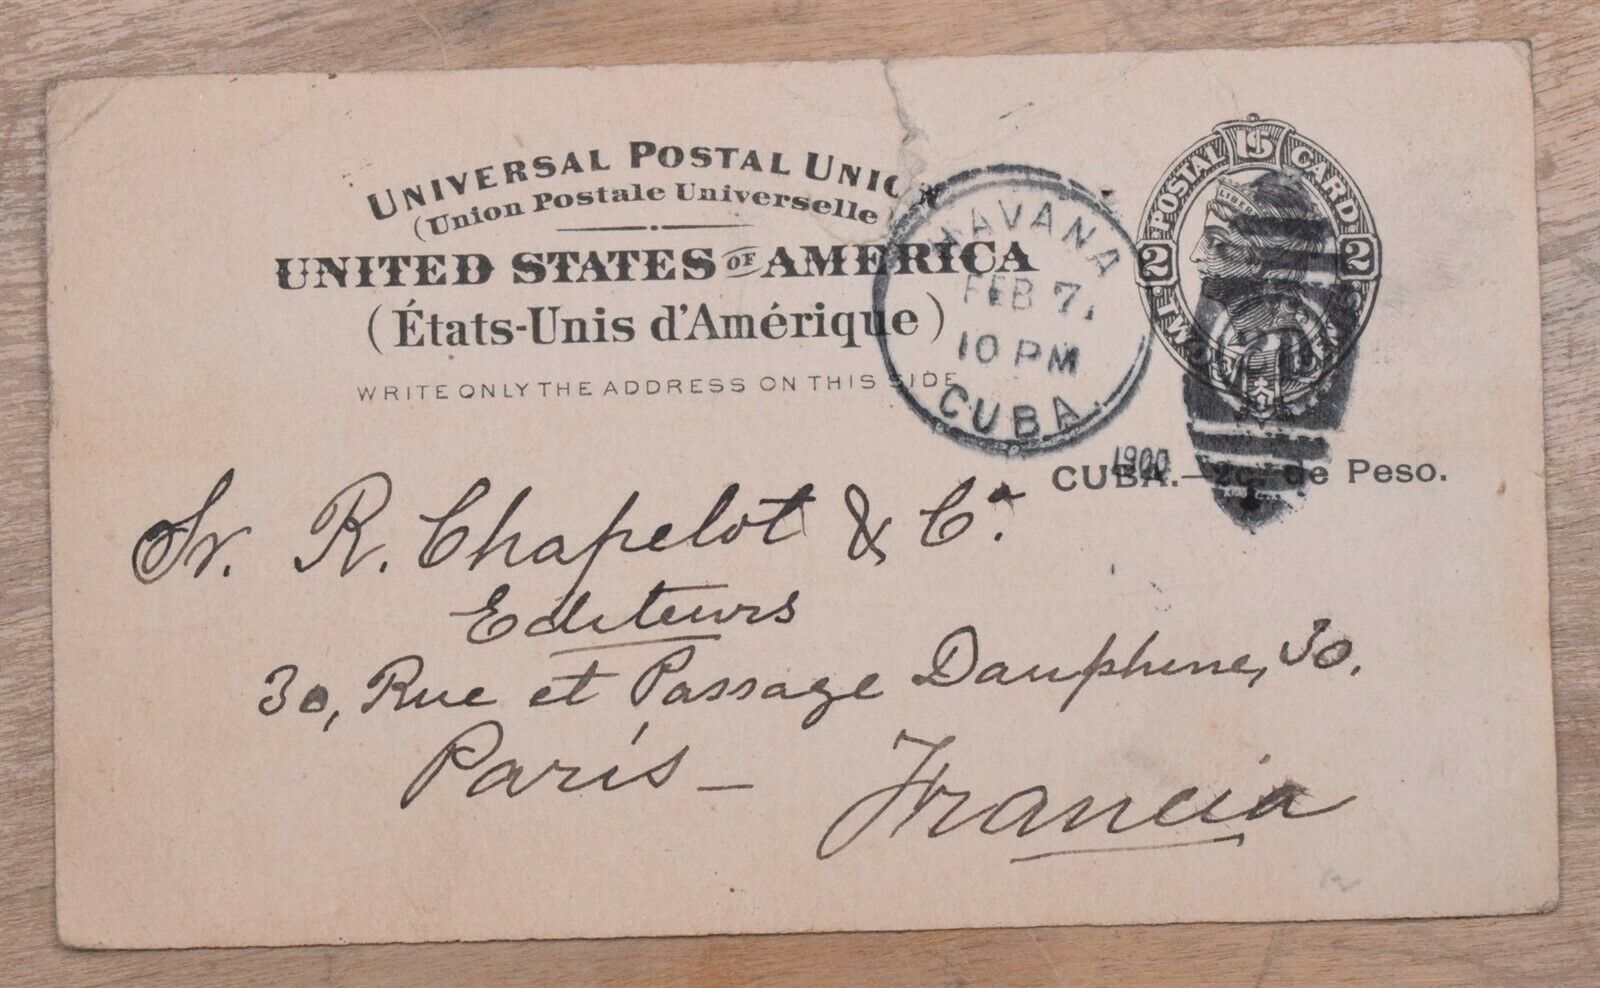 UNIVERSAL POSTAL UNION
(Union Postale Universelle
UNITED STATES OF AMERICA
(États-Unis d'Amérique)
WRITE ONLY THE ADDRESS ON THIS SIDE
HAVANA
FEB 7
10 PM
CUBA.
1900
POSTAL CARD
2 2
CUBA.—2c. de Peso.
Sr. R. Chapelot & Cª.
Editeurs
30, Rue et Passage Dauphine, 30.
París — Francia